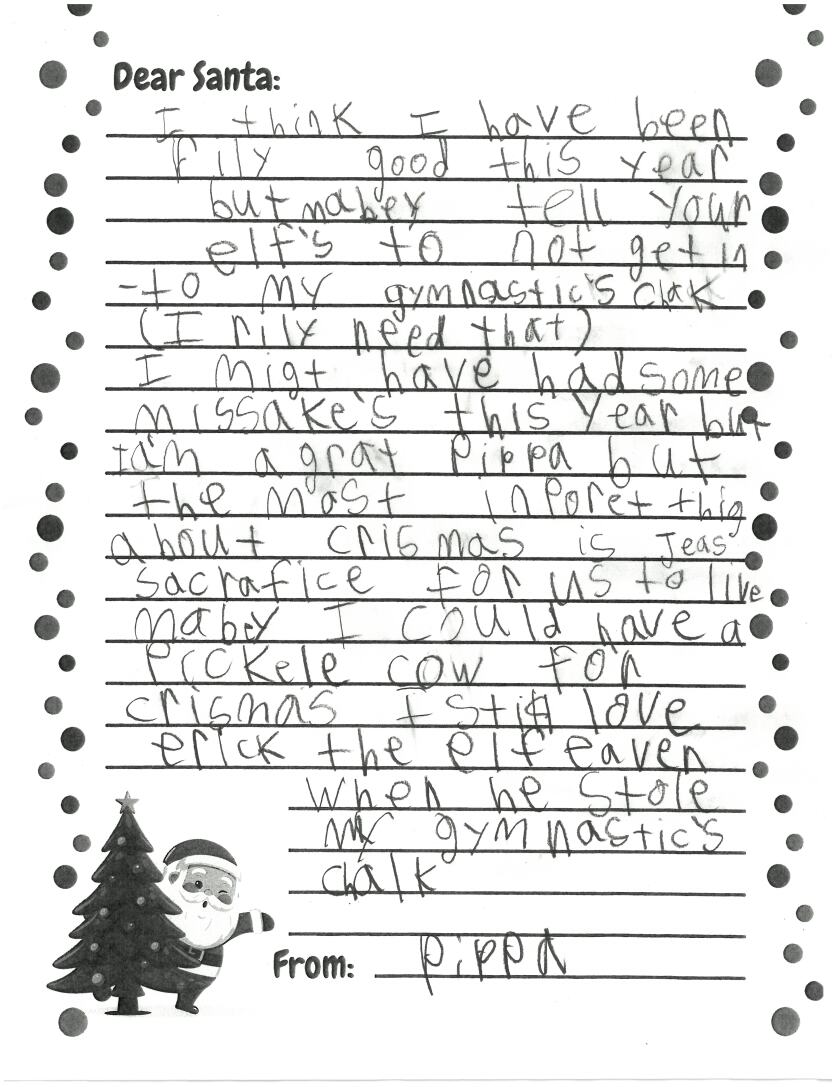 Dear Santa:
I think I have been
rily good this year
but mabey tell your
elf's to not get in
-to my gymnastic's chak
(I rily need that)
I migt have had some
missake's this year but
Iam a grat Pippa but
the mast inporet thig
about crismas is Jeas
sacrafice for us to live
mabey I could have a
Pickele cow for
crismas I still love
erick the elf eaven
when he stole
my gymnastic's
chalk
From: Pippa